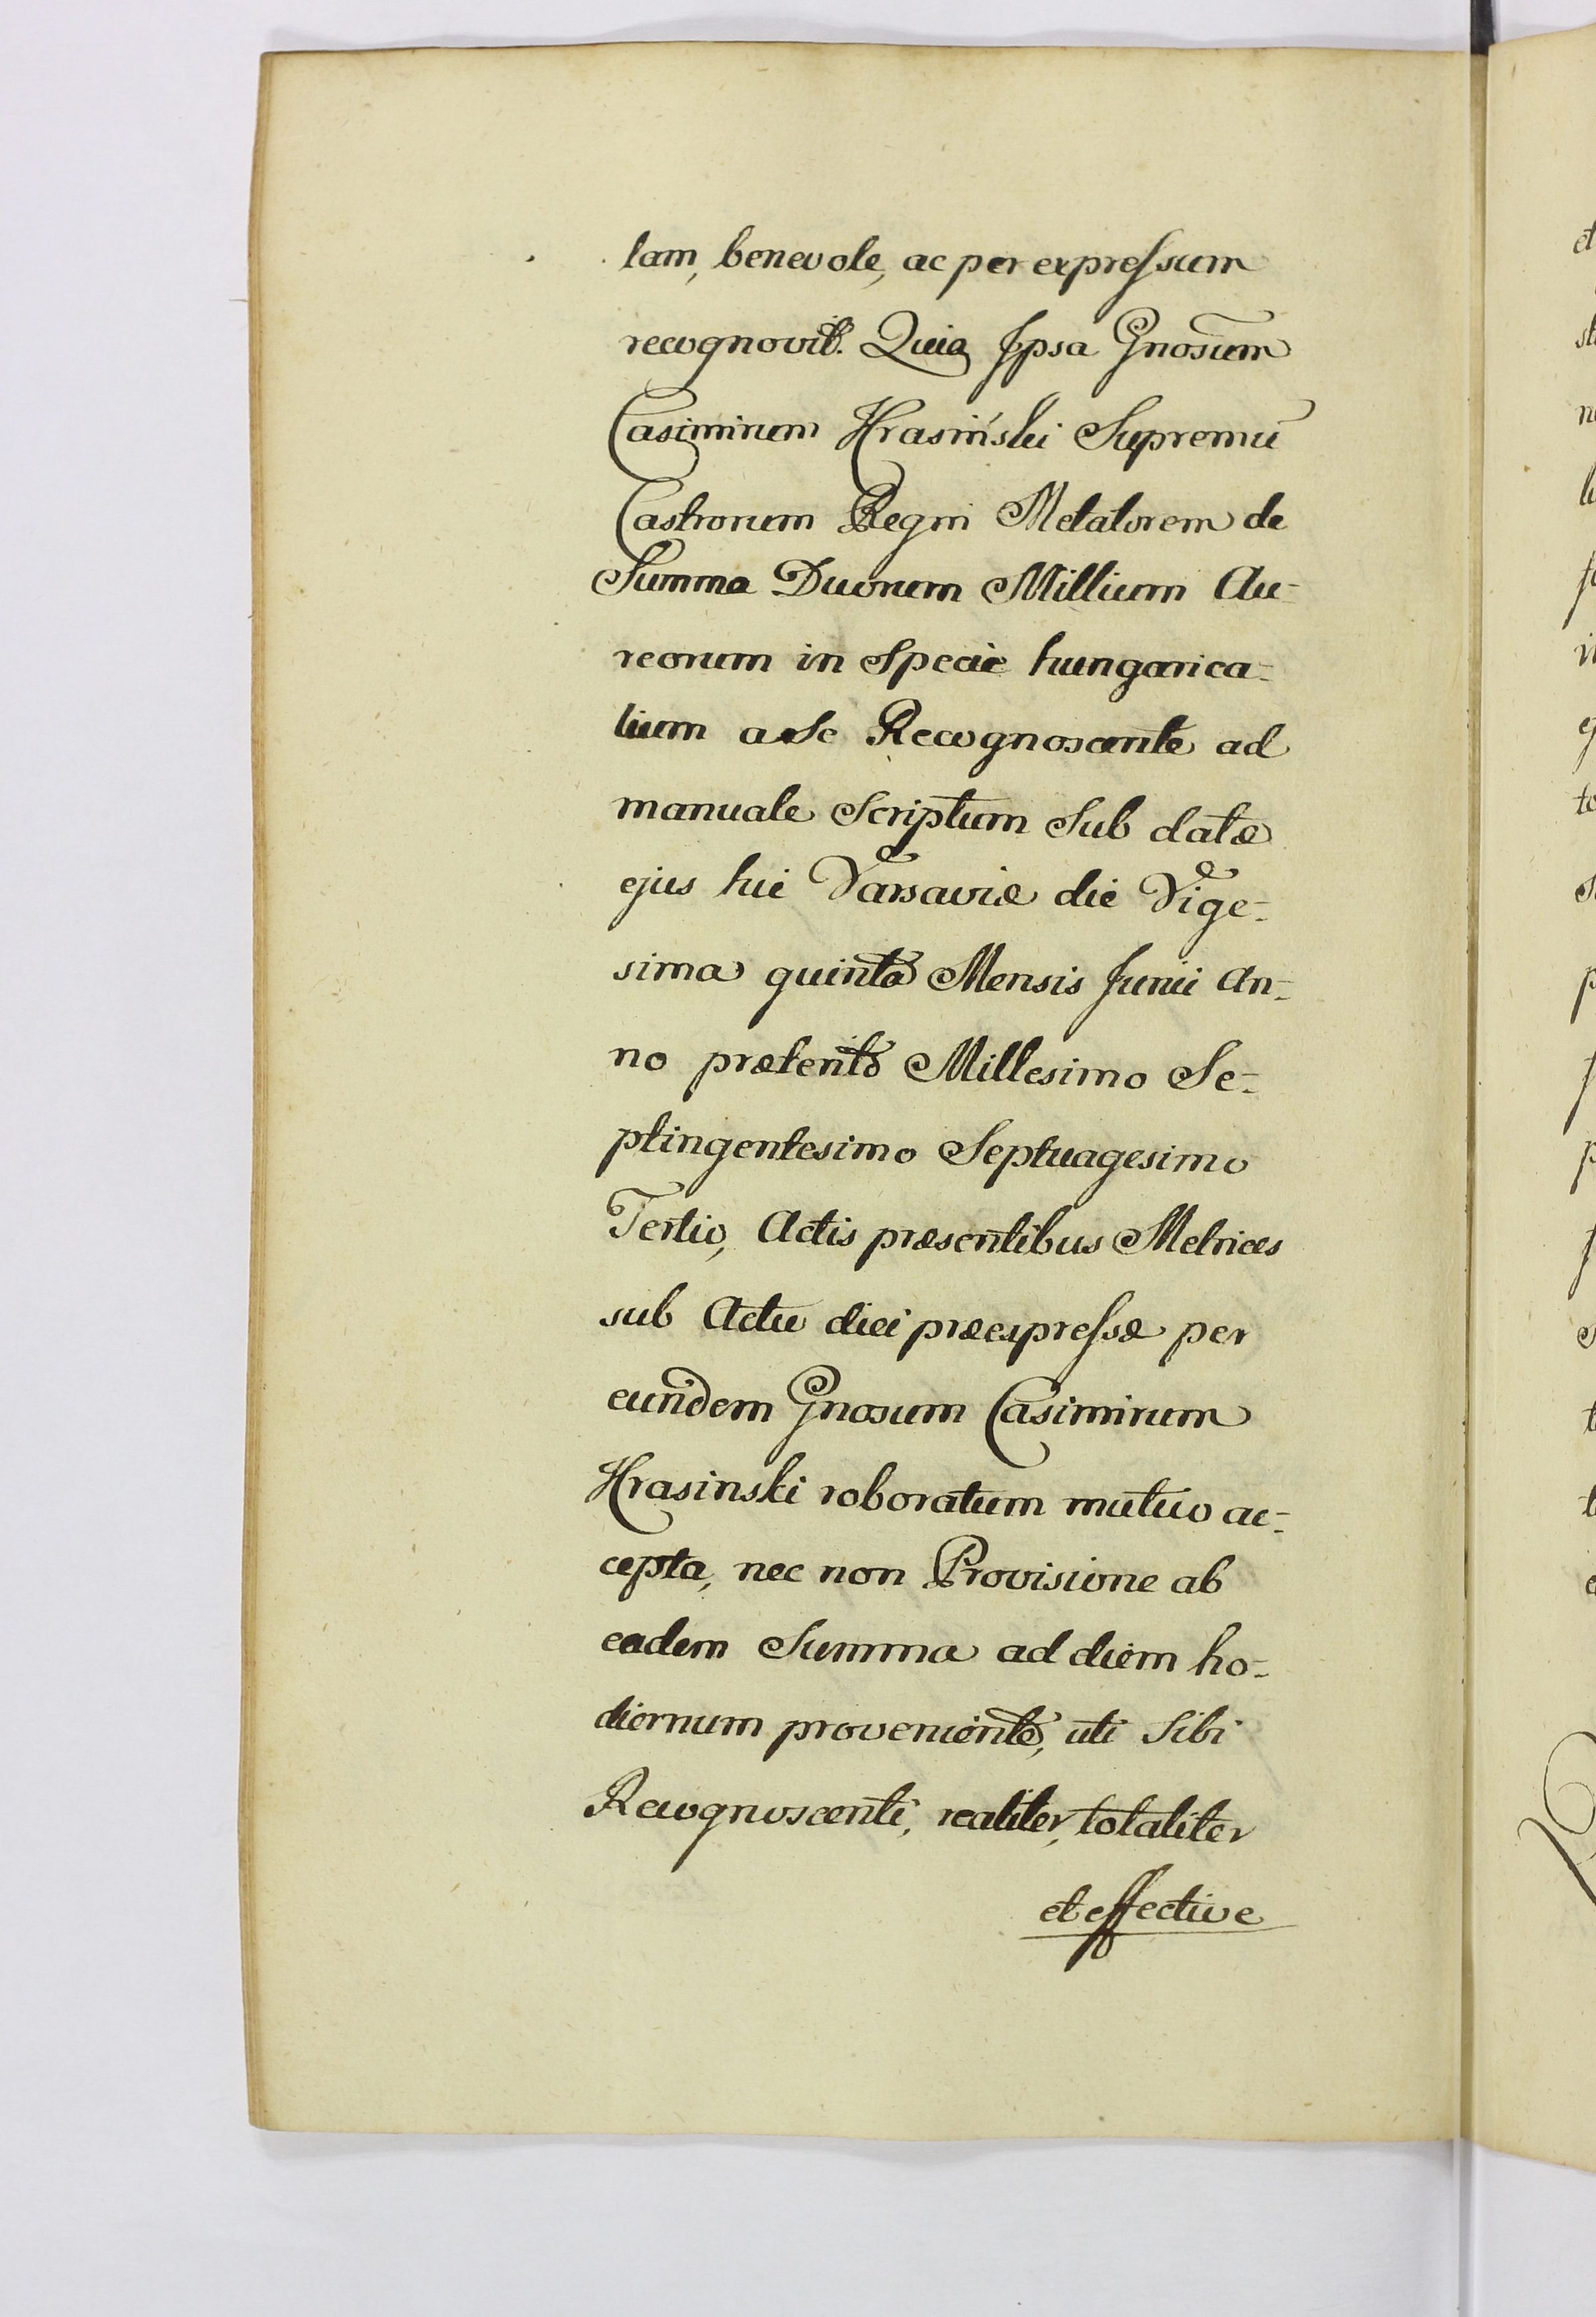 lam, benevole, ac per expressum
recognovit. Quia Ipsa Gnosum
Casimirum Krasiński Supremū
Castrorum Regni Metatorem de
Summa Duorum Millium Au-
reorum in Specie hungarica-
lium a Se Recognoscente ad
manuale Scriptum Sub data
ejus hic Varsaviæ die Vige-
sima quinta Mensis Junii An-
no præterito Millesimo Se-
ptingentesimo Septuagesimo
Tertio, Actis præsentibus Metrices
sub Actu diei præexpressæ per
eundem Gnosum Casimirum
Krasinski roboratum mutuo ac-
cepta, nec non Provisione ab
eadem Summa ad diem ho-
diernum proveniente, uti Sibi
Recognoscenti, realiter, totaliter
et effective